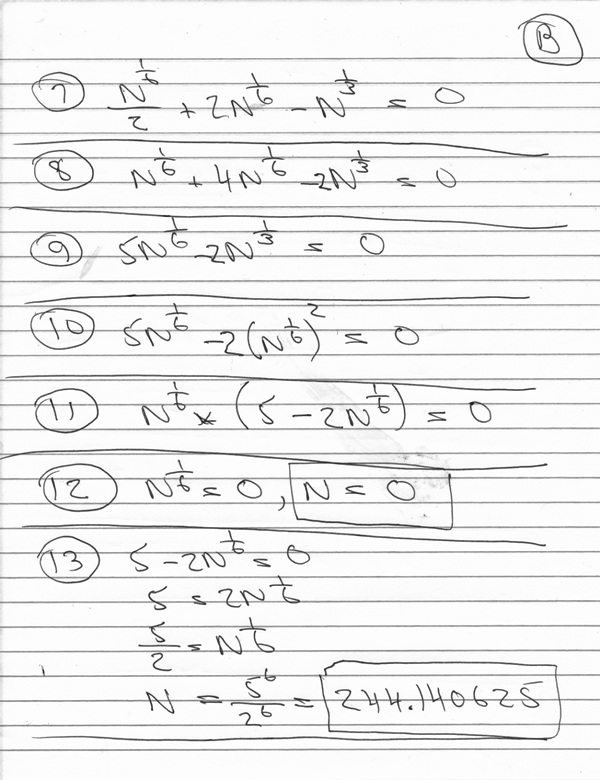 B
7 N^(1/6)/2 + 2N^(1/6) - N^(1/3) = 0
8 N^(1/6) + 4N^(1/6) - 2N^(1/3) = 0
9 5N^(1/6) - 2N^(1/3) = 0
10 5N^(1/6) - 2(N^(1/6))^2 = 0
11 N^(1/6) × (5 - 2N^(1/6)) = 0
12 N^(1/6) = 0, N = 0
13 5 - 2N^(1/6) = 0
5 = 2N^(1/6)
5/2 = N^(1/6)
N = 5^6/2^6 = 244.140625